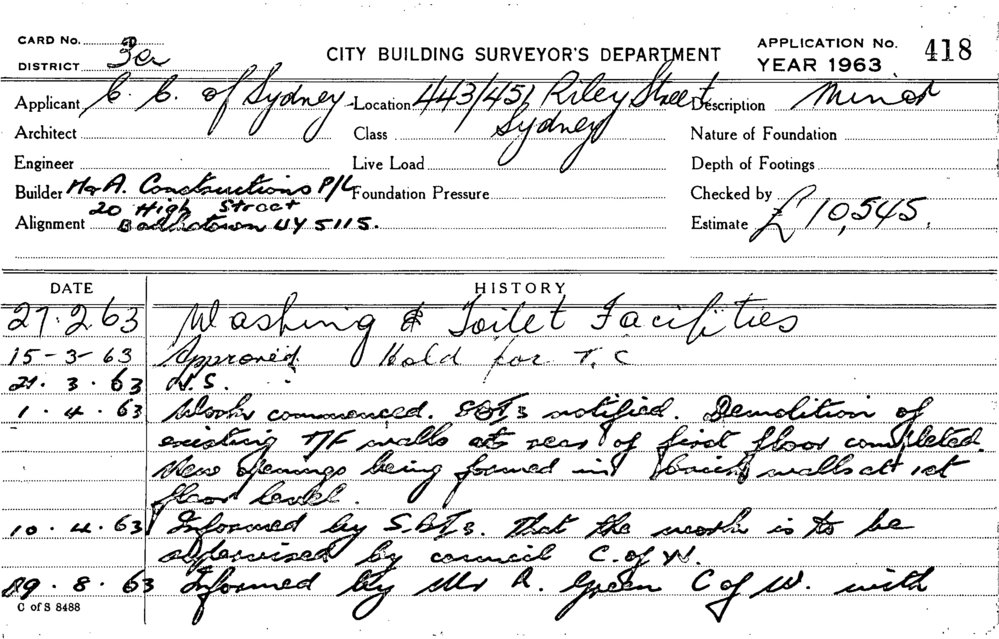 CARD No.
DISTRICT 3er
CITY BUILDING SURVEYOR'S DEPARTMENT
APPLICATION No. 418
YEAR 1963
Applicant C. C. of Sydney Location 443/451 Riley Street Sydney Description Minor
Architect Class Nature of Foundation
Engineer Live Load Depth of Footings
Builder H & A. Constructions P/L Foundation Pressure Checked by
20 High Street
Alignment UY 5115. Estimate £10,545.
DATE HISTORY
27.2.63 Washing & Toilet Facilities
15-3-63 Approved. Hold for T.C
21.3.63 N.S.
1.4.63 Work commenced. notified. Demolition of
existing T/F walls at rear of first floor completed.
New openings being formed in brick walls at 1st
floor level.
10.4.63 Informed by That the work is to be
supervised by council C. of W.
29.8.63 Informed by Mr R. Green C of W. with
C of S 8488